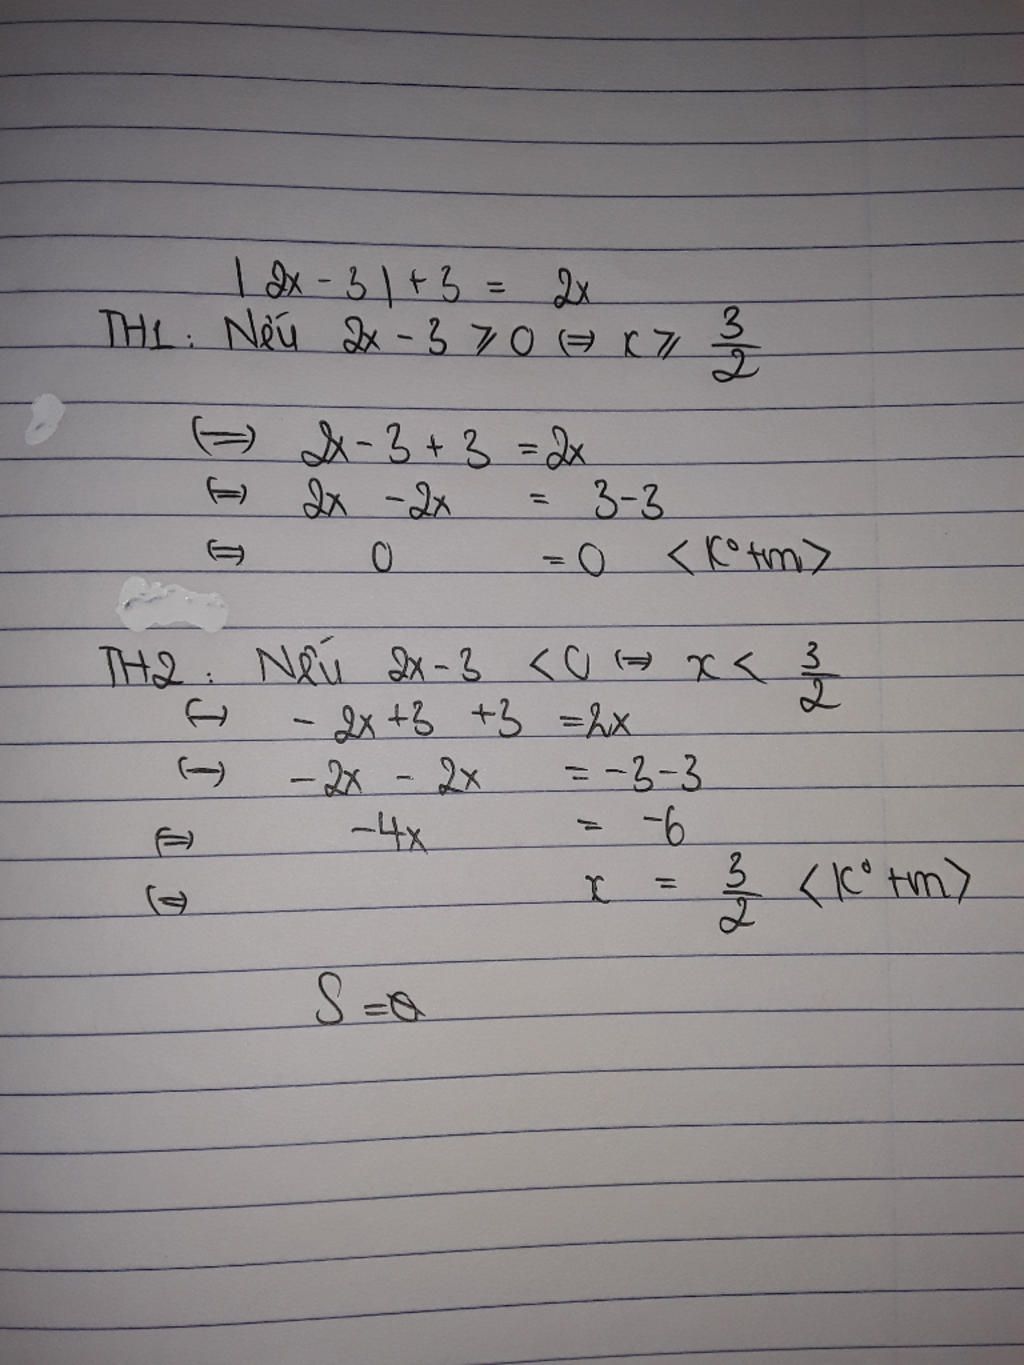 |2x - 3| + 3 = 2x
TH1: Nếu 2x - 3 ⩾ 0 ⇔ x ⩾ 3/2
⇔ 2x - 3 + 3 = 2x
⇔ 2x - 2x = 3 - 3
⇔ 0 = 0 <K° tm>
TH2: Nếu 2x - 3 < 0 ⇔ x < 3/2
⇔ - 2x + 3 + 3 = 2x
⇔ - 2x - 2x = - 3 - 3
⇔ - 4x = - 6
⇔ x = 3/2 <K° tm>
S = ∅